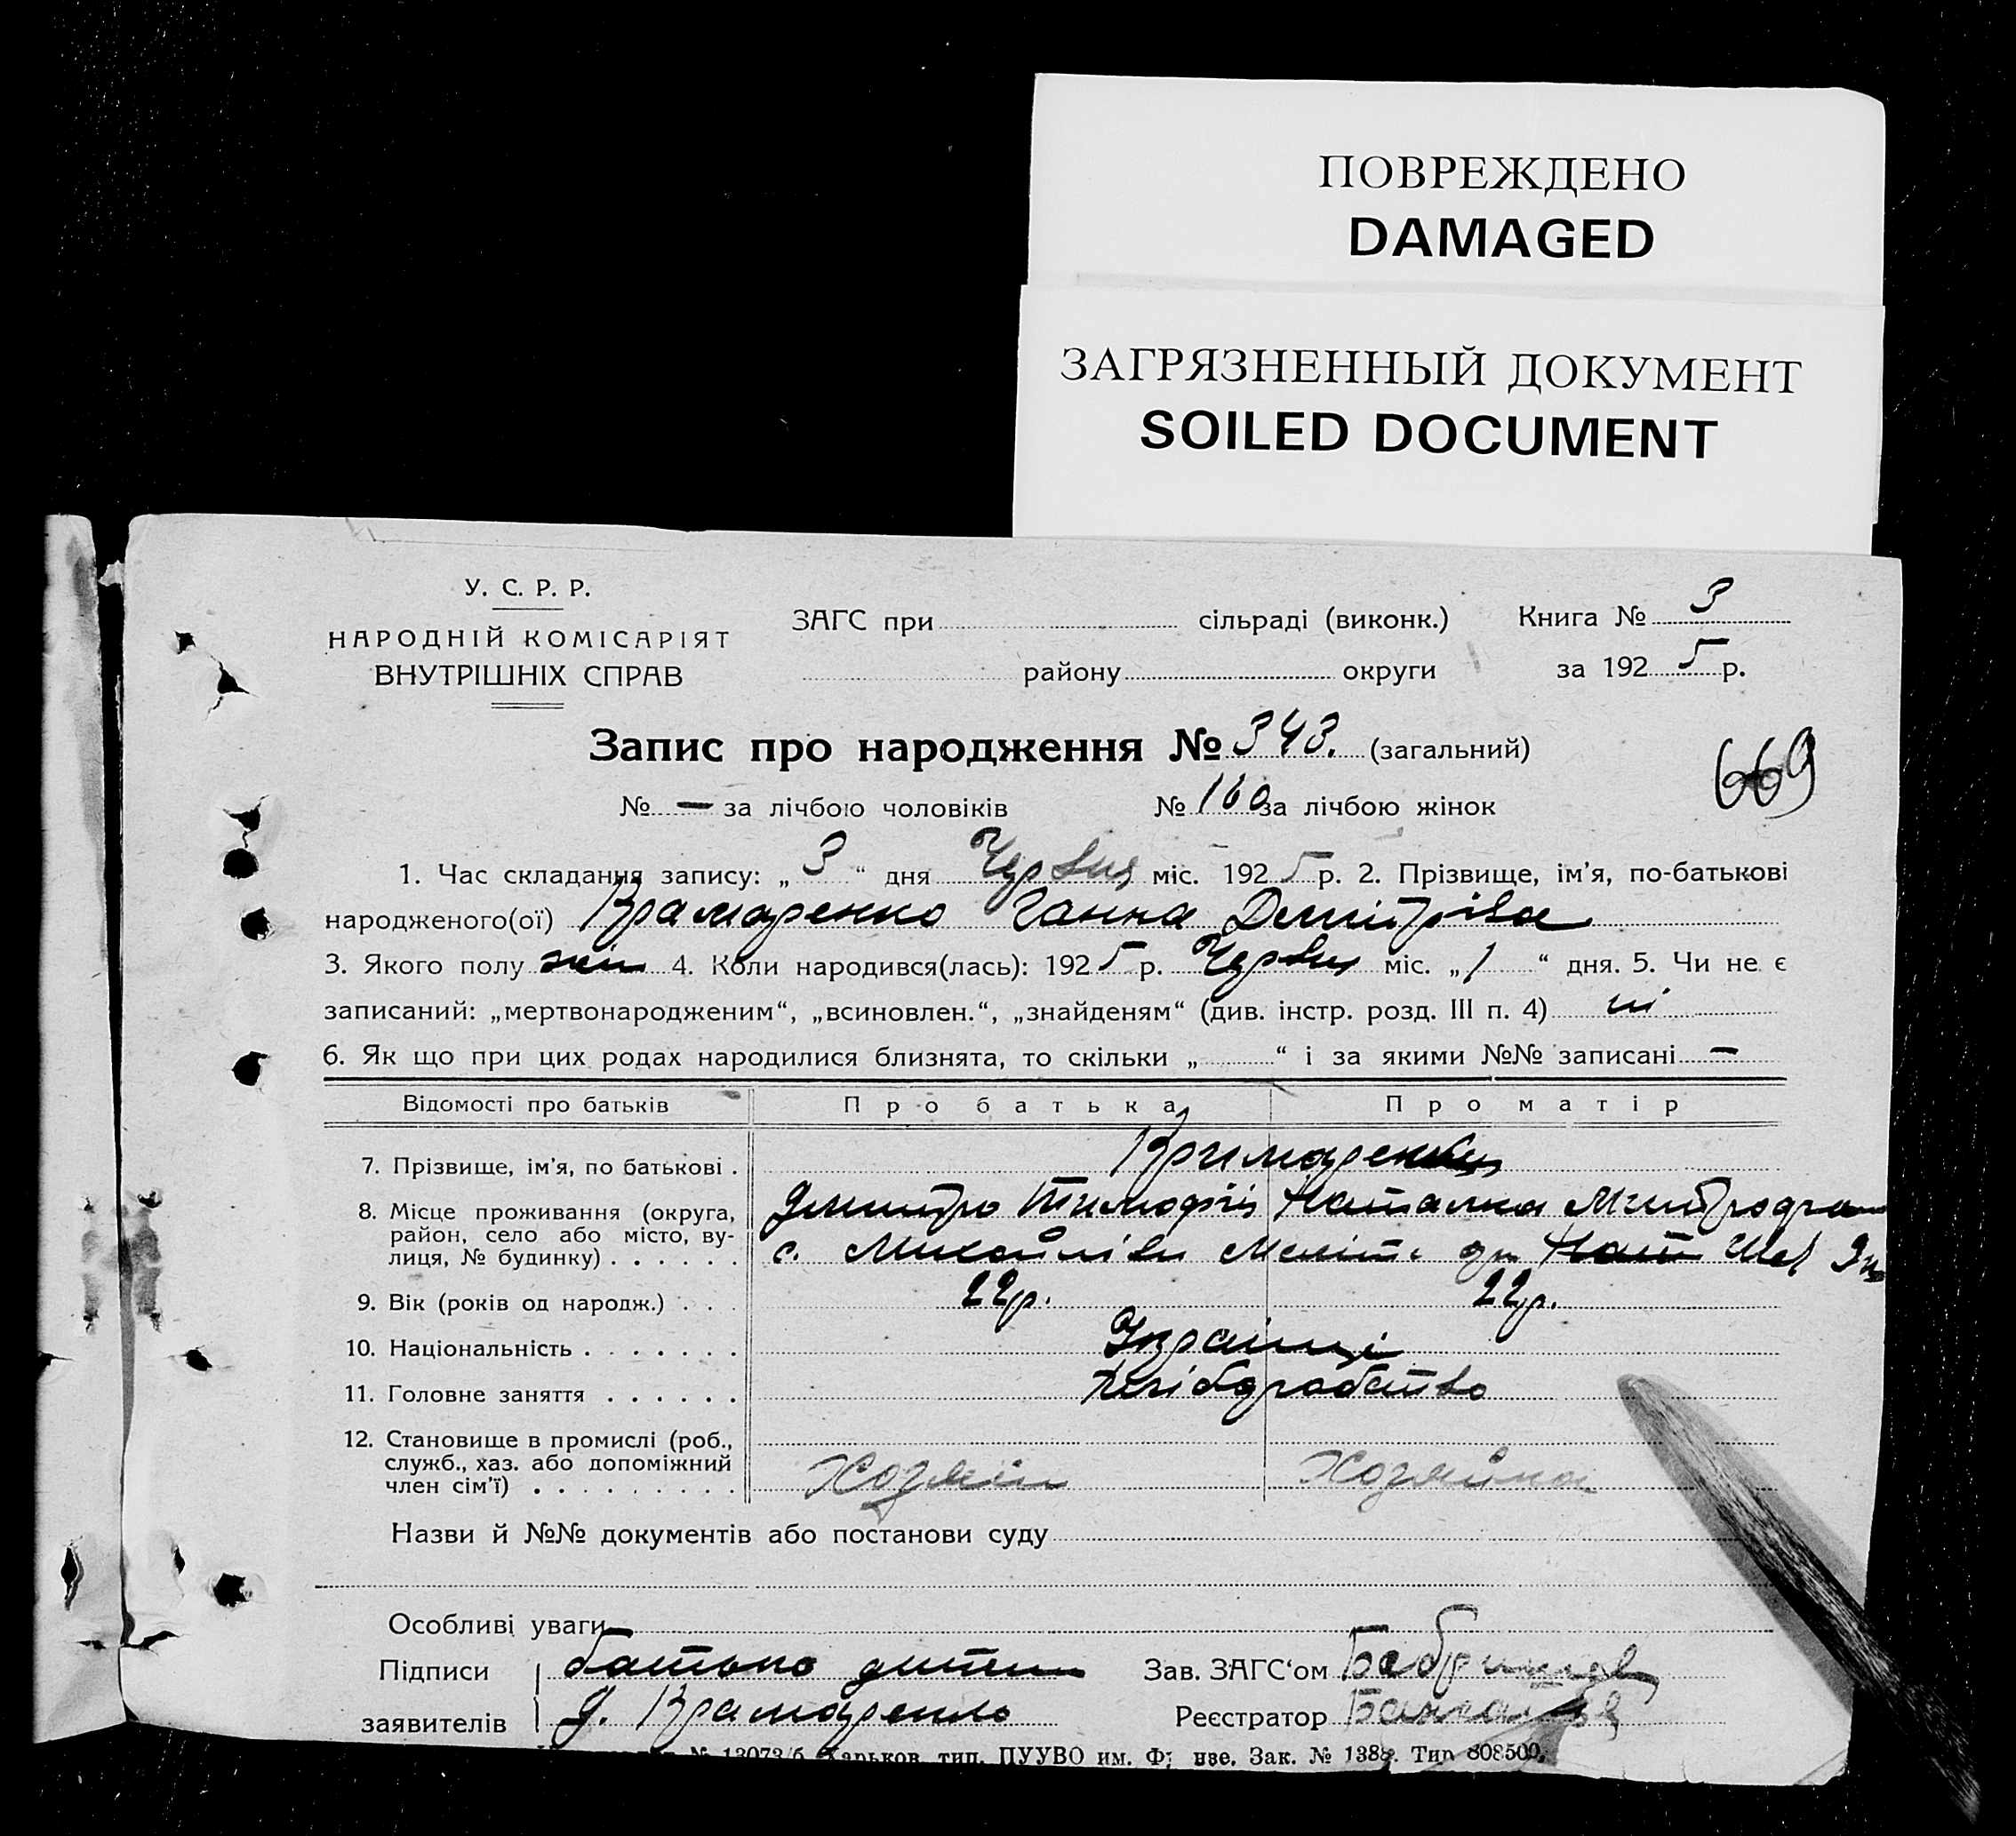 ПОВРЕЖДЕНО
DAMAGED
ЗАГРЯЗНЕННЫЙ ДОКУМЕНТ
SOILED DOCUMENT
У. С. Р. Р.
НАРОДНІЙ КОМІСАРІЯТ
ВНУТРІШНІХ СПРАВ
ЗАГС при сільраді (виконк.) Книга № 3
району округи за 1925 р.
Запис про народження № 343. (загальний)
669
№ — за лічбою чоловіків № 160 за лічбою жінок
1. Час складання запису: „ 3 “ дня Червня міс. 1925 р. 2. Прізвище, ім'я, по-батькові
народженого(ої) Крамаренко Ганна Дмитрівна
3. Якого полу жін 4. Коли народився(лась): 1925 р. Червня міс. „ 1 “ дня. 5. Чи не є
записаний: „мертвонародженим“, „всиновлен.“, „знайденям“ (див. інстр. розд. III п. 4) ні
6. Як що при цих родах народилися близнята, то скільки „ “ і за якими №№ записані —
Відомості про батьків Про батька Про матір
7. Прізвище, ім'я, по батькові . Крамаренки
8. Місце проживання (округа, Дмитро Тимофій Наталка
район, село або місто, ву-
лиця, № будинку) . . . . . . с. Михайлівка Меліт.
9. Вік (років од народж.) . . . 22р. 22р.
10. Національність . . . . . . . Українці
11. Головне заняття . . . . . . Хліборобство
12. Становище в промислі (роб.,
служб., хаз. або допоміжний
член сім'ї) . . . . . . . . . Хозяїн Хозяйка
Назви й №№ документів або постанови суду
Особливі уваги
Підписи батько дитини Зав. ЗАГС'ом
заявителів Д. Крамаренко Реєстратор
№ 13073/б. Харьков, тип. ПУУВО им. Зак. № 1388. Тир 808500.